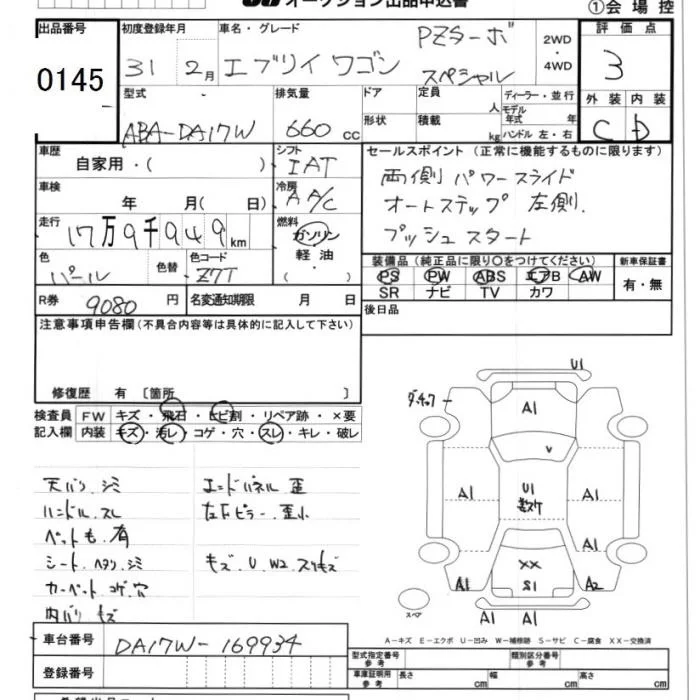 オークション出品申込書
①会場控
出品番号 初度登録年月 車名・グレード PZターボ 2WD・4WD 評価点
0145 31 2月 エブリイワゴン スペシャル 3
型式 排気量 ドア 定員 人 ディーラー・並行 外装 内装
ABA-DA17W 660cc 形状 積載 kg モデル年式 年式 ハンドル 左・右 C D
車歴 自家用・( ) シフト IAT セールスポイント (正常に機能するものに限ります)
車検 年 月( 日) 冷房 A A/C 両側パワースライド
走行 17万9千949km 燃料 ガソリン・軽油・( ) オートステップ 左側.
プッシュスタート
色 パール 色替 色コード Z7T 装備品(純正品に限り○をつけてください) 新車保証書
PS PW ABS エアB AW 有・無
SR ナビ TV カワ
R券 9080円 名変通知期限 月 日 後日品
注意事項申告欄(不具合内容等は具体的に記入して下さい)
修復歴 有 〔箇所 〕
検査員 FW キズ・飛石・ヒビ割・リペア跡・×要
記入欄 内装 キズ・汚レ・コゲ・穴・スレ・キレ・破レ
天バリ.シミ エンドパネル 歪
ハンドル.スレ 左下ピラー.歪小
ペットも.有
シート.ヘタリ シミ キズ.U.W2.スリキズ
カーペット コゲ.穴
内バリ キズ
U1
A1
v
A1 U1 A1
A1
XX
A1 S1 A2
スペア A1 A1
A-キズ E-エクボ U-凹み W-補修跡 S-サビ C-腐食 XX-交換済
車台番号 DA17W-169934 型式指定番号 参考 類別区分番号 参考
登録番号 車庫証明用 参考 長さ cm 幅 cm 高さ cm